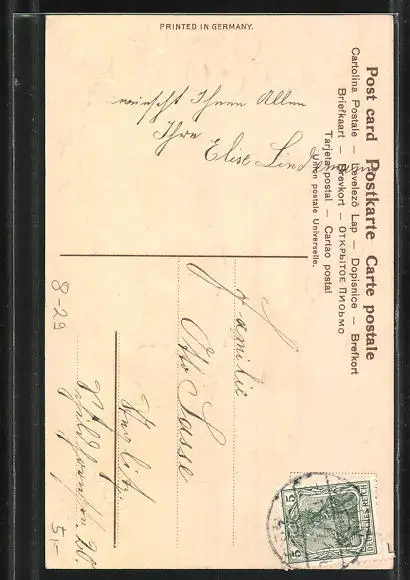 PRINTED IN GERMANY.
Post card Postkarte Carte postale
Cartolina Postale — Levelező Lap — Dopisnice — Brefkort
Briefkaart — Brevkort — ОТКРЫТОЕ ПИСЬМО
Tarjeta postal — Cartao postal
Union postale Universelle.
wünscht Ihnen Allen
Ihre
Elise
Familie
Otto Sasse
8-29
5,-
5
5
DEUTSCHES REICH